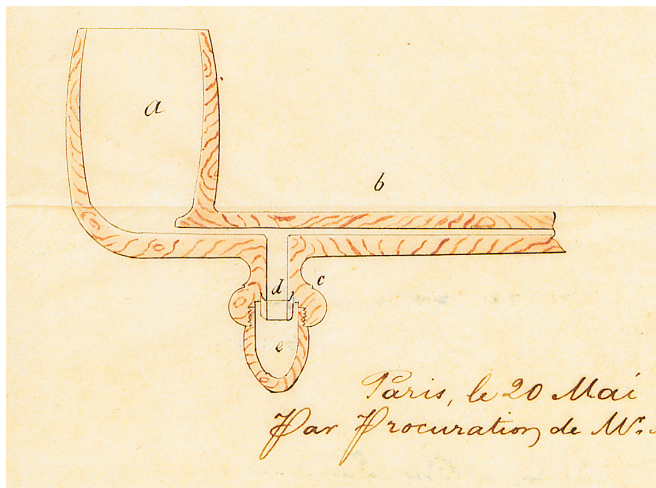 a
b
c
d
e
Paris, le 20 Mai
Par Procuration de Mr.